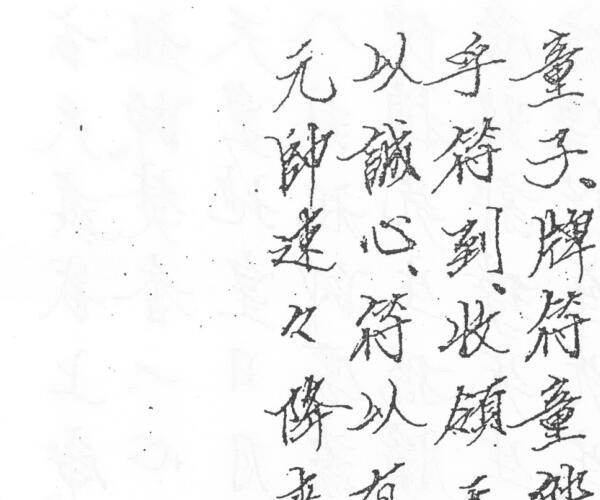 童子。牌符童
乎符到、收領
以誠心、符以有
元帥速々降